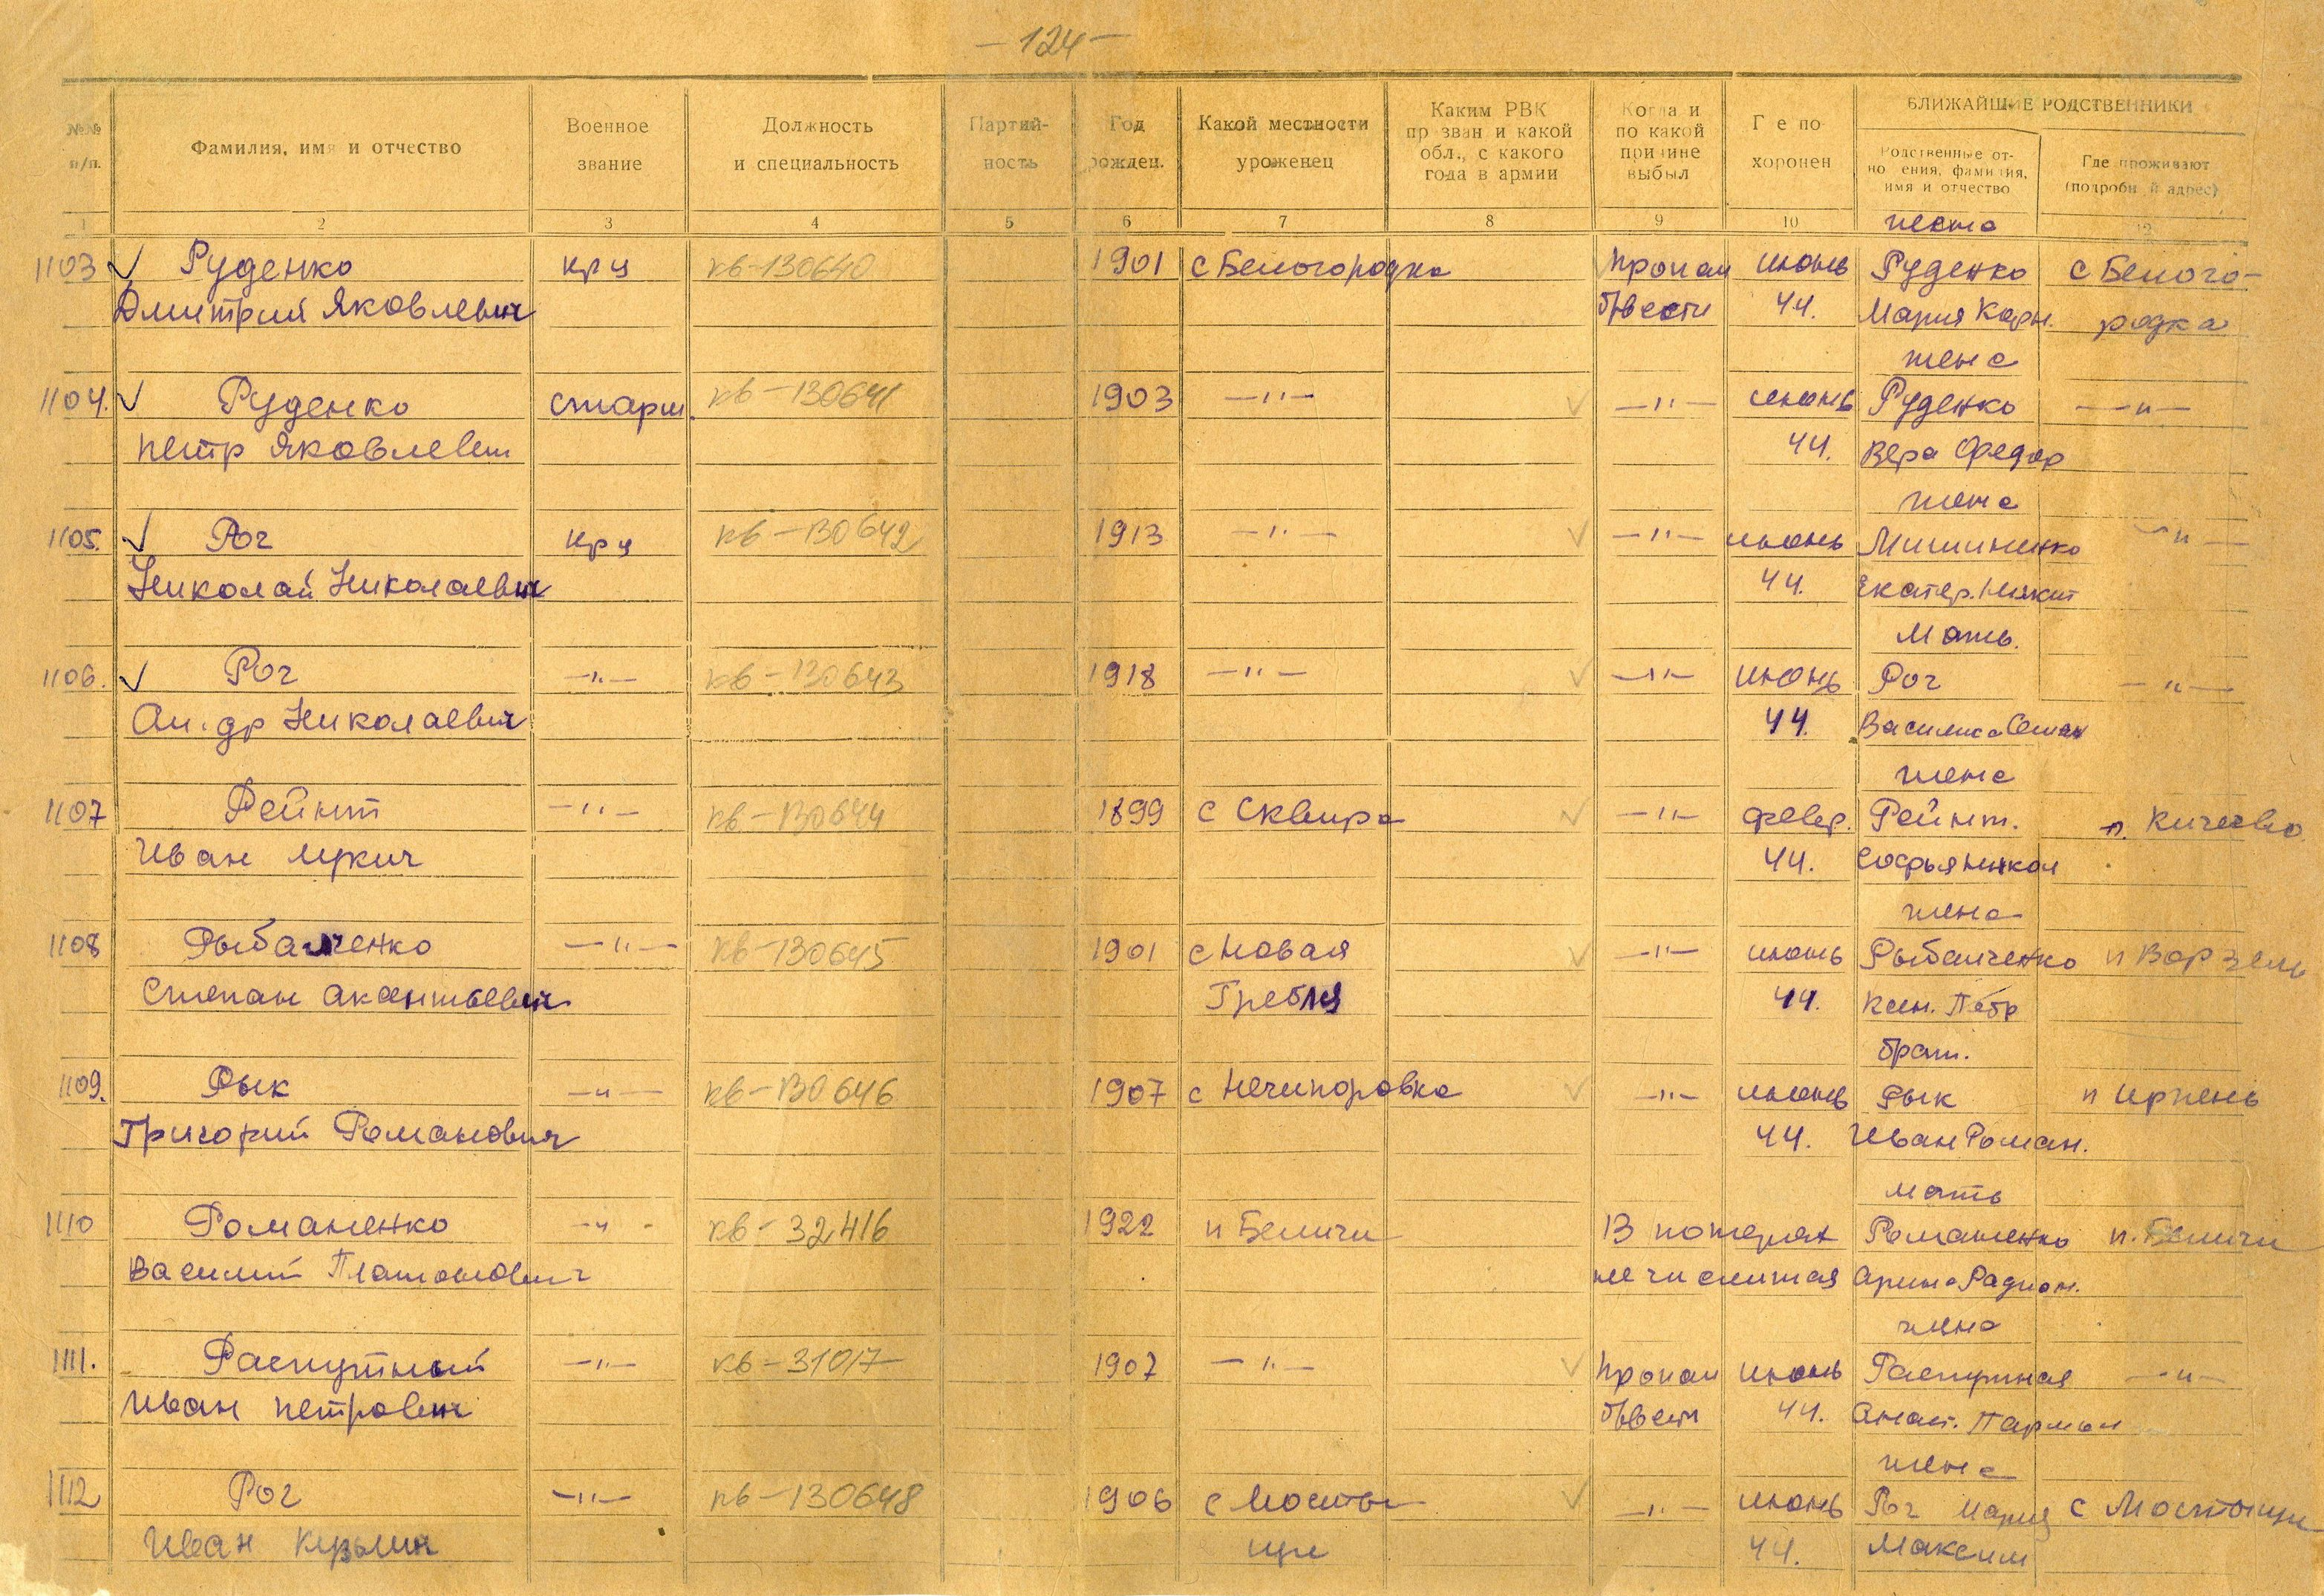 — 124 —
БЛИЖАЙШИЕ РОДСТВЕННИКИ
№№ п/п.
Фамилия, имя и отчество
Военное звание
Должность и специальность
Партийность
Год рожден.
Какой местности уроженец
Каким РВК призван и какой обл., с какого года в армии
Когда и по какой причине выбыл
Где похоронен
Родственные отношения, фамилия, имя и отчество
Где проживают (подробный адрес)
1 2 3 4 5 6 7 8 9 10 12
жена
1103 Руденко кр-ц кв-130640 1901 с Белогородка пропал июнь Руденко с Белого-
Дмитрий Яковлевич б/вести 44. Мария Карн. родка
жена
1104. Руденко старш. кв-130641 1903 —"— —"— июнь Руденко —"—
Петр Яковлевич 44. Вера Федор
жена
1105. Рог кр-ц кв-130642 1913 —"— —"— июнь Мишиненко —"—
Николай Николаевич 44. Екатер. Никит
Мать.
1106. Рог —"— кв-130643 1918 —"— —"— июнь Рог —"—
Ал-др Николаевич 44. Василиса Семен
жена
1107 Рейнт —"— кв-130644 1899 с Сквира —"— февр. Рейнт. п. Кичеево
Иван Лукич 44. Софья Никол
жена
1108 Рыбалченко —"— кв-130645 1901 с Новая —"— июнь Рыбалченко п Ворзель
Степан Акентьевич Гребля 44. Ксен. Петр
брат.
1109. Рык —"— кв-130646 1907 с Нечипоровка —"— июнь Рык п Ирпень
Григорий Романович 44. Иван Роман.
мать
1110 Романенко —"— кв-32416 1922 п Беличи В потерях Романенко п. Беличи
Василий Платонович не числится Арина Радион.
жена
1111. Распутный —"— кв-31017 1907 —"— пропал июнь Распутная —"—
Иван Петрович б/вест 44. Анаст. Пармен
жена
1112 Рог —"— кв-130648 1906 с Мосты- —"— июнь Рог Мария с Мостыще
Иван Кузьмич ще 44. Максим